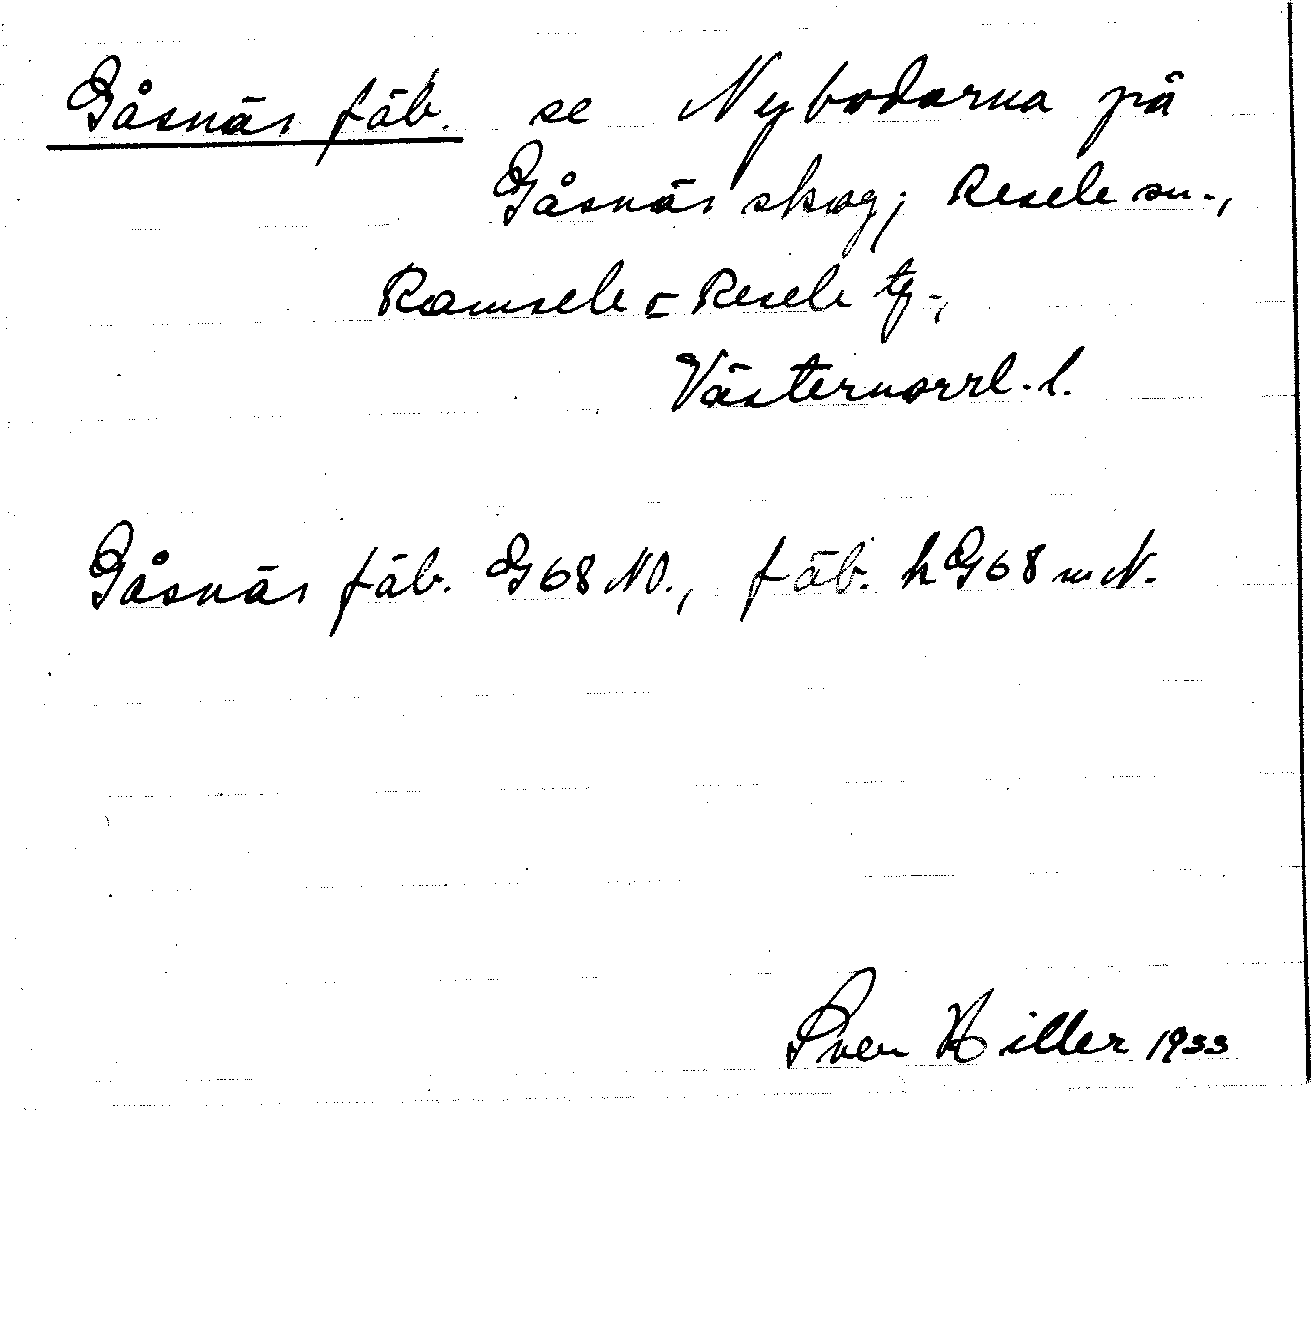 Gåsnäs fäb. se Nybodarna på
Gåsnäs skog; Resele sn.,
Ramsele o Resele tg.,
Västernorrl. l.
Gåsnäs fäb. G68 NO., fäb. h G68 m N.
Sven Hiller 1933